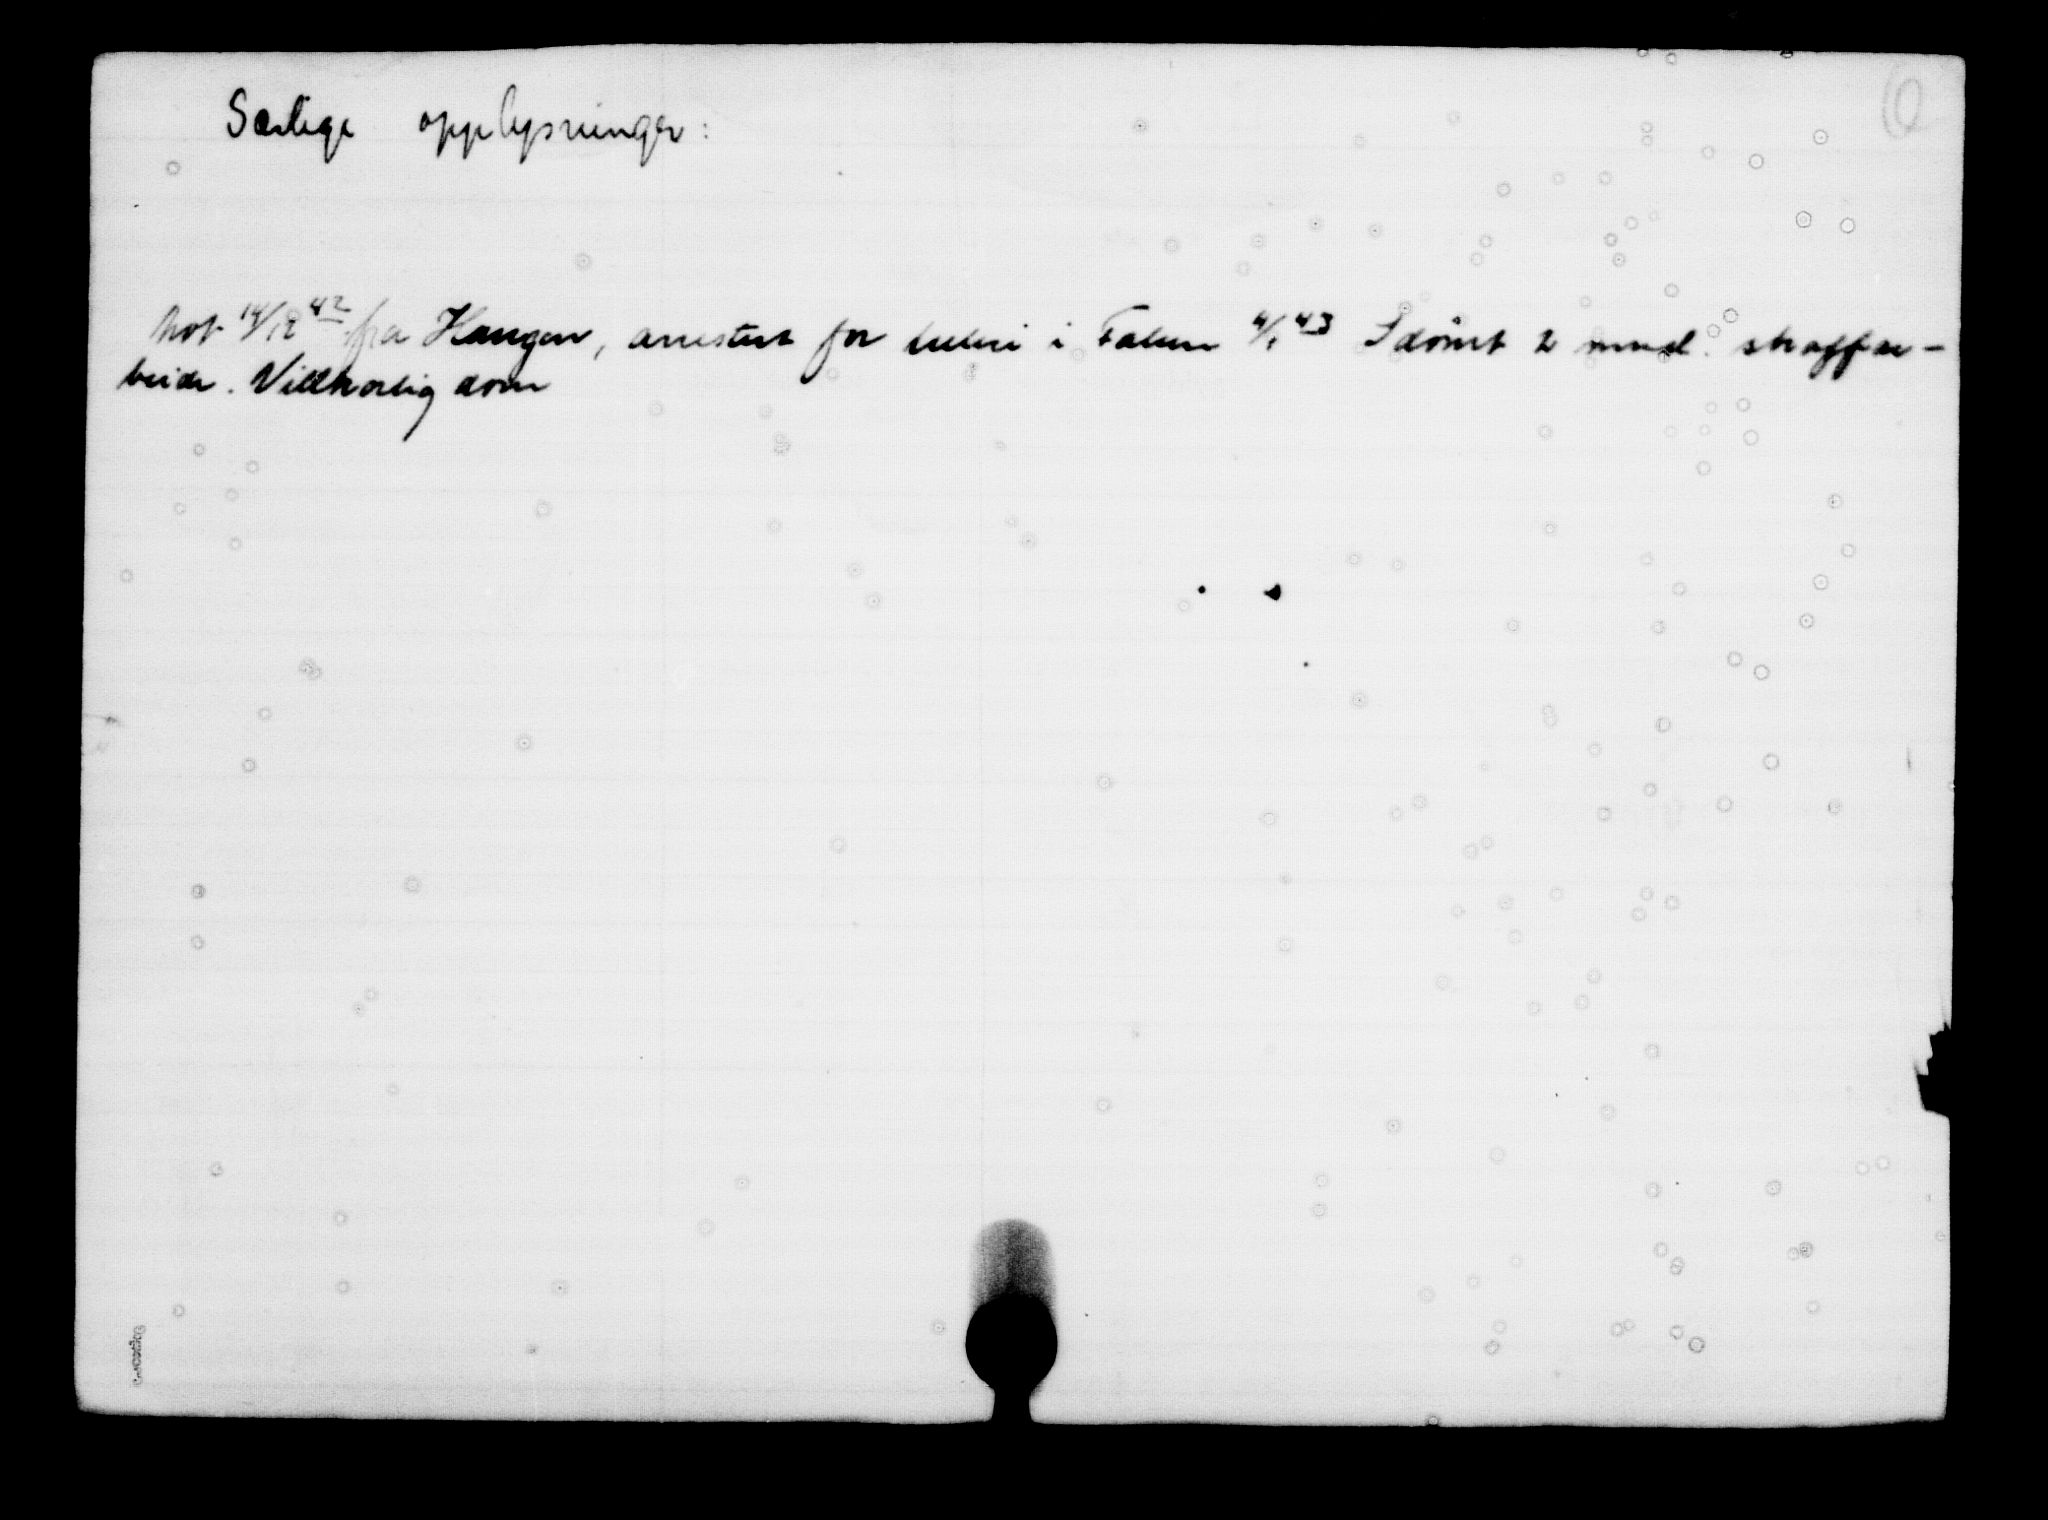 Særlige opplysninger:
Not 14/12 42 fra Haugen, arrestert for heleri i Falun 4/1 43 Idømt 2 mnd. straffar-
beide. Villkorlig dom